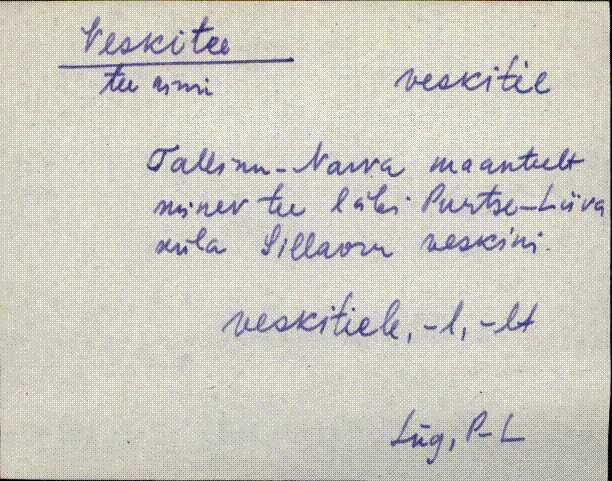 Veskitee
tee nimi
veskitiè
Tallinn-Narva maanteelt
minev tee läbi Purtse-Liiva
küla Sillaoru veskini.
veskitiele, -l, -lt
Lüg, P-L